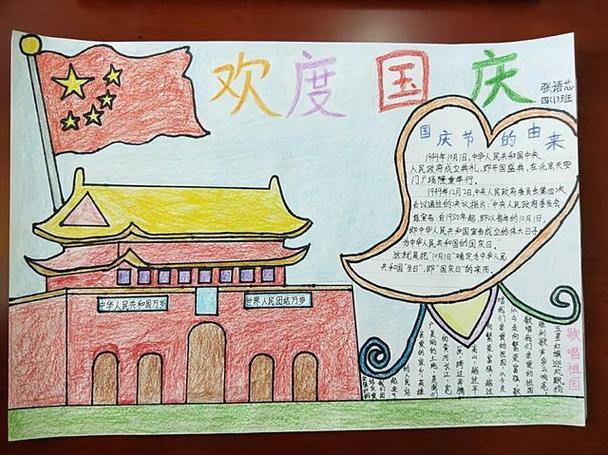 欢度国庆
张语芯
四(1)班
国庆节的由来
1949年10月1日,中华人民共和国中央
人民政府成立典礼,即开国盛典,在北京天安
门广场隆重举行。
1949年12月2日,中央人民政府委员会第四次
会议通过的决议指出:"中央人民政府委员会
兹宣告:自1950年起,即以每年的10月1日,
即中华人民共和国宣告成立的伟大日子,
为中华人民共和国的国庆日。"
这就是把"10月1日"确定为中华人民
共和国"生日",即"国庆日"的来历。
中华人民共和国万岁
世界人民团结万岁
歌唱祖国
五星红旗迎风飘扬
胜利歌声多么响亮
歌唱我们亲爱的祖国
从今走向繁荣富强